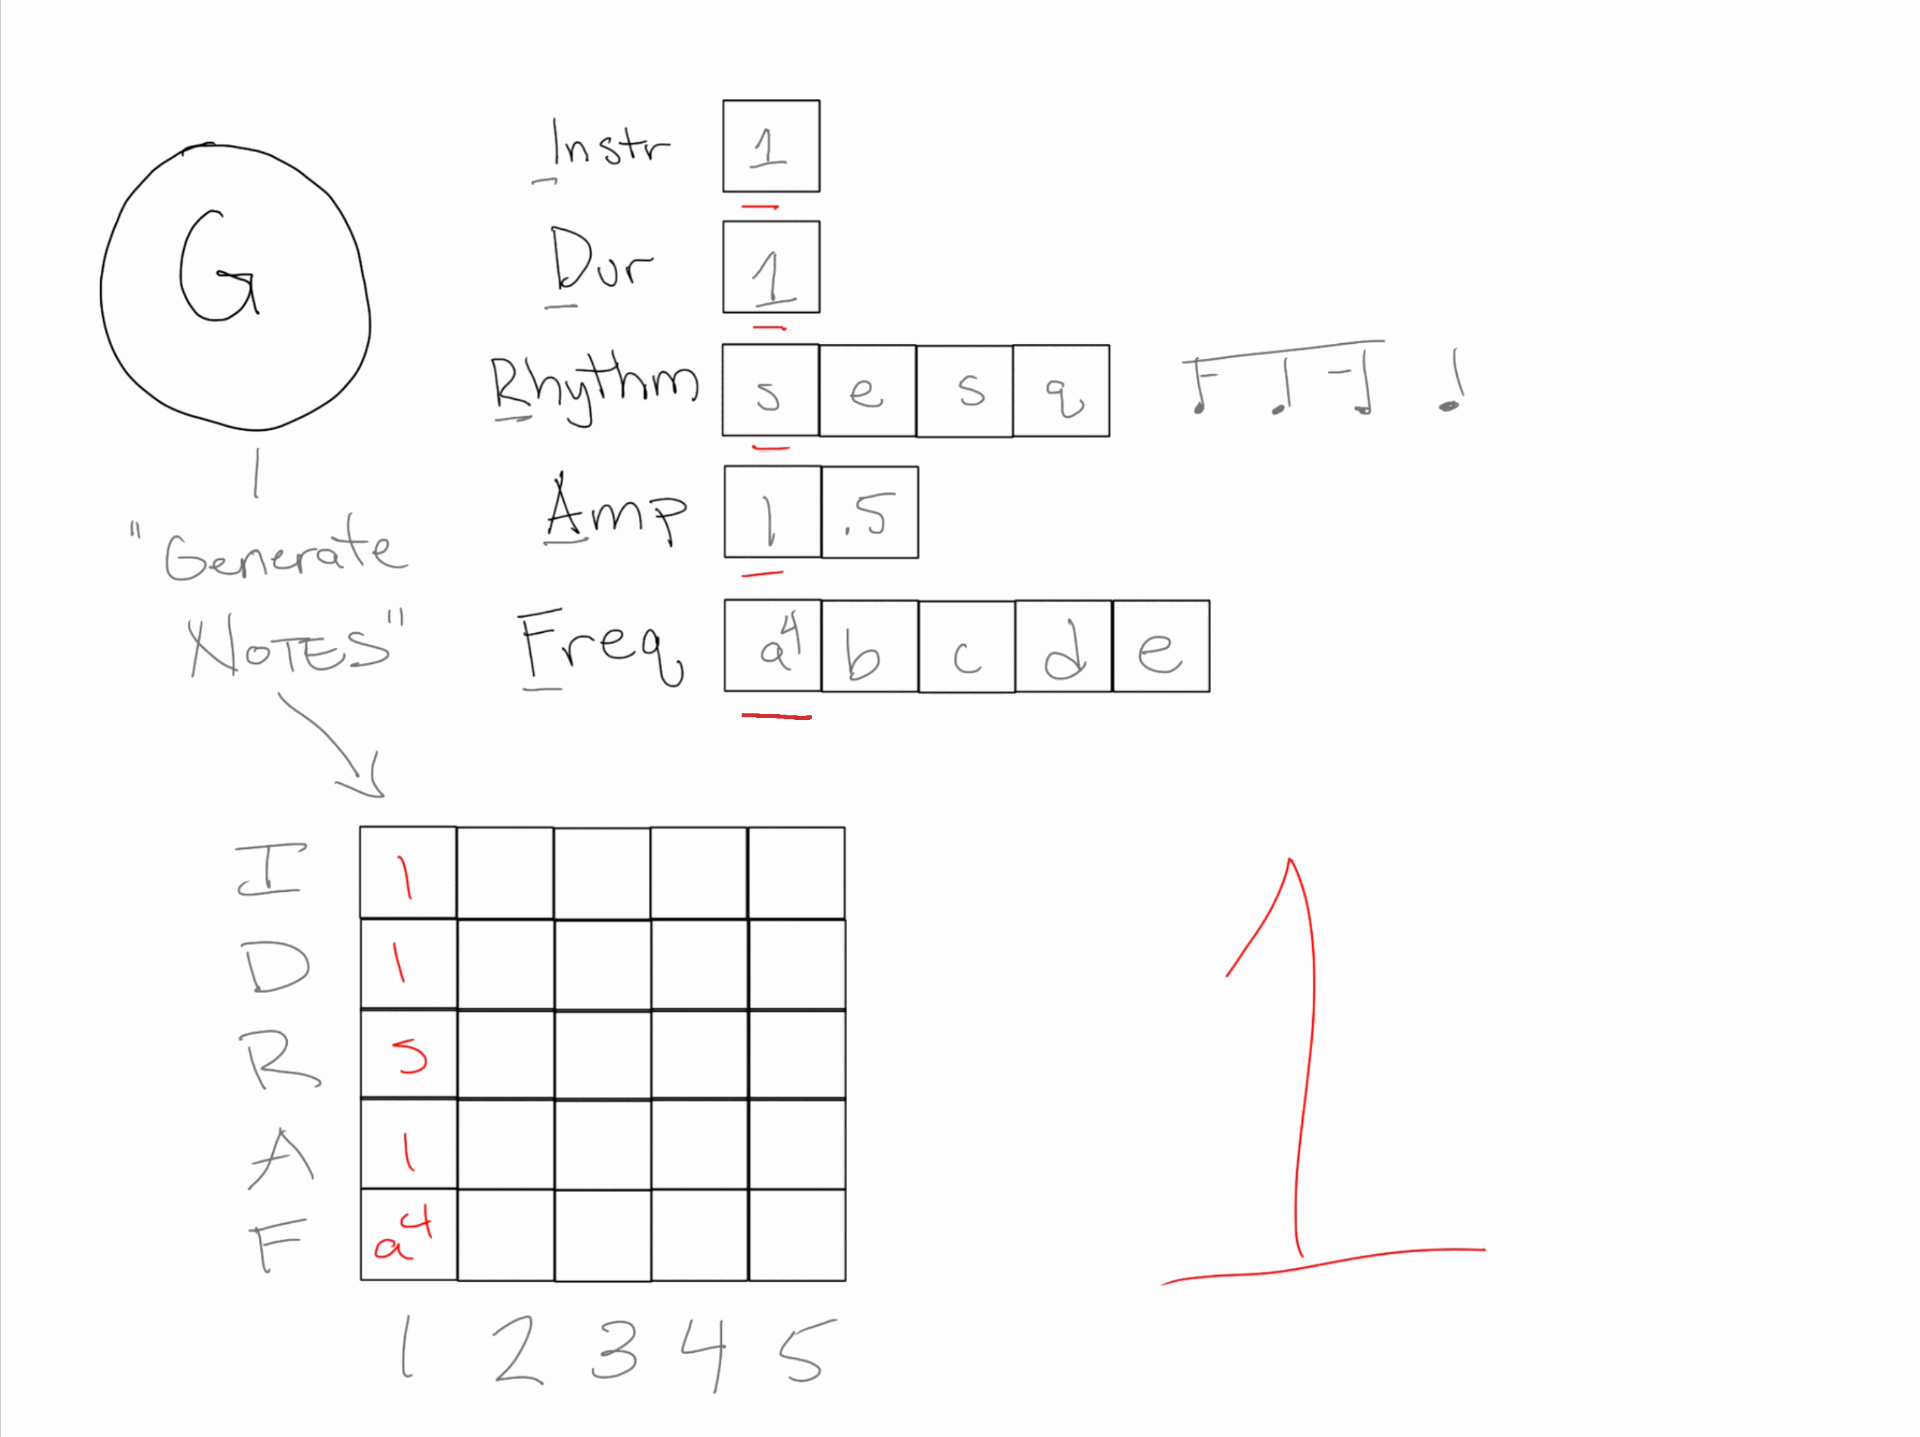 G
"Generate
NOTES"
Instr 1
Dur 1
Rhythm s e s q
Amp 1 .5
Freq a4 b c d e
I 1
D 1
R s
A 1
F a4
1 2 3 4 5
1